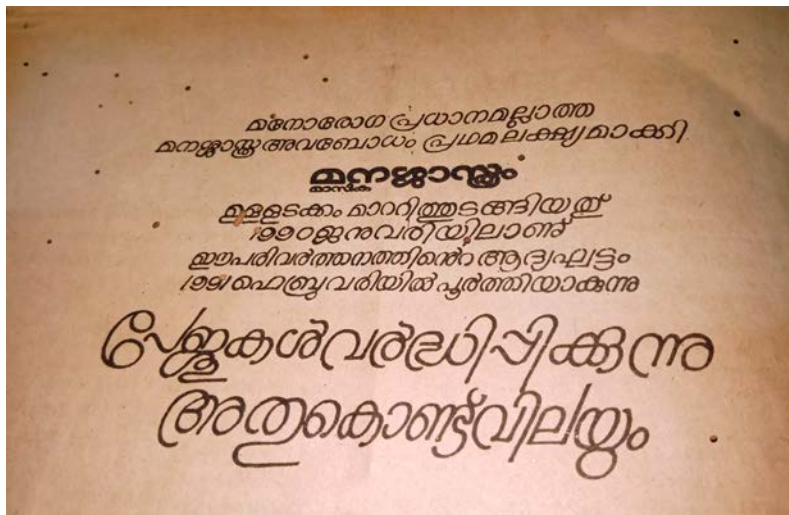 മനോരോഗ പ്രധാനമല്ലാത്ത
മനശ്ശാസ്ത്ര അവബോധം പ്രഥമ ലക്ഷ്യമാക്കി
മനശ്ശാസ്ത്രം
മാസിക
ഉള്ളടക്കം മാററിത്തുടങ്ങിയത്
1990 ജനുവരിയിലാണ്
ഈ പരിവർത്തനത്തിൻെറ ആദ്യഘട്ടം
1991 ഫെബ്രുവരിയിൽ പൂർത്തിയാകുന്നു
പേജുകൾ വർദ്ധിപ്പിക്കുന്നു
അതുകൊണ്ട് വിലയും